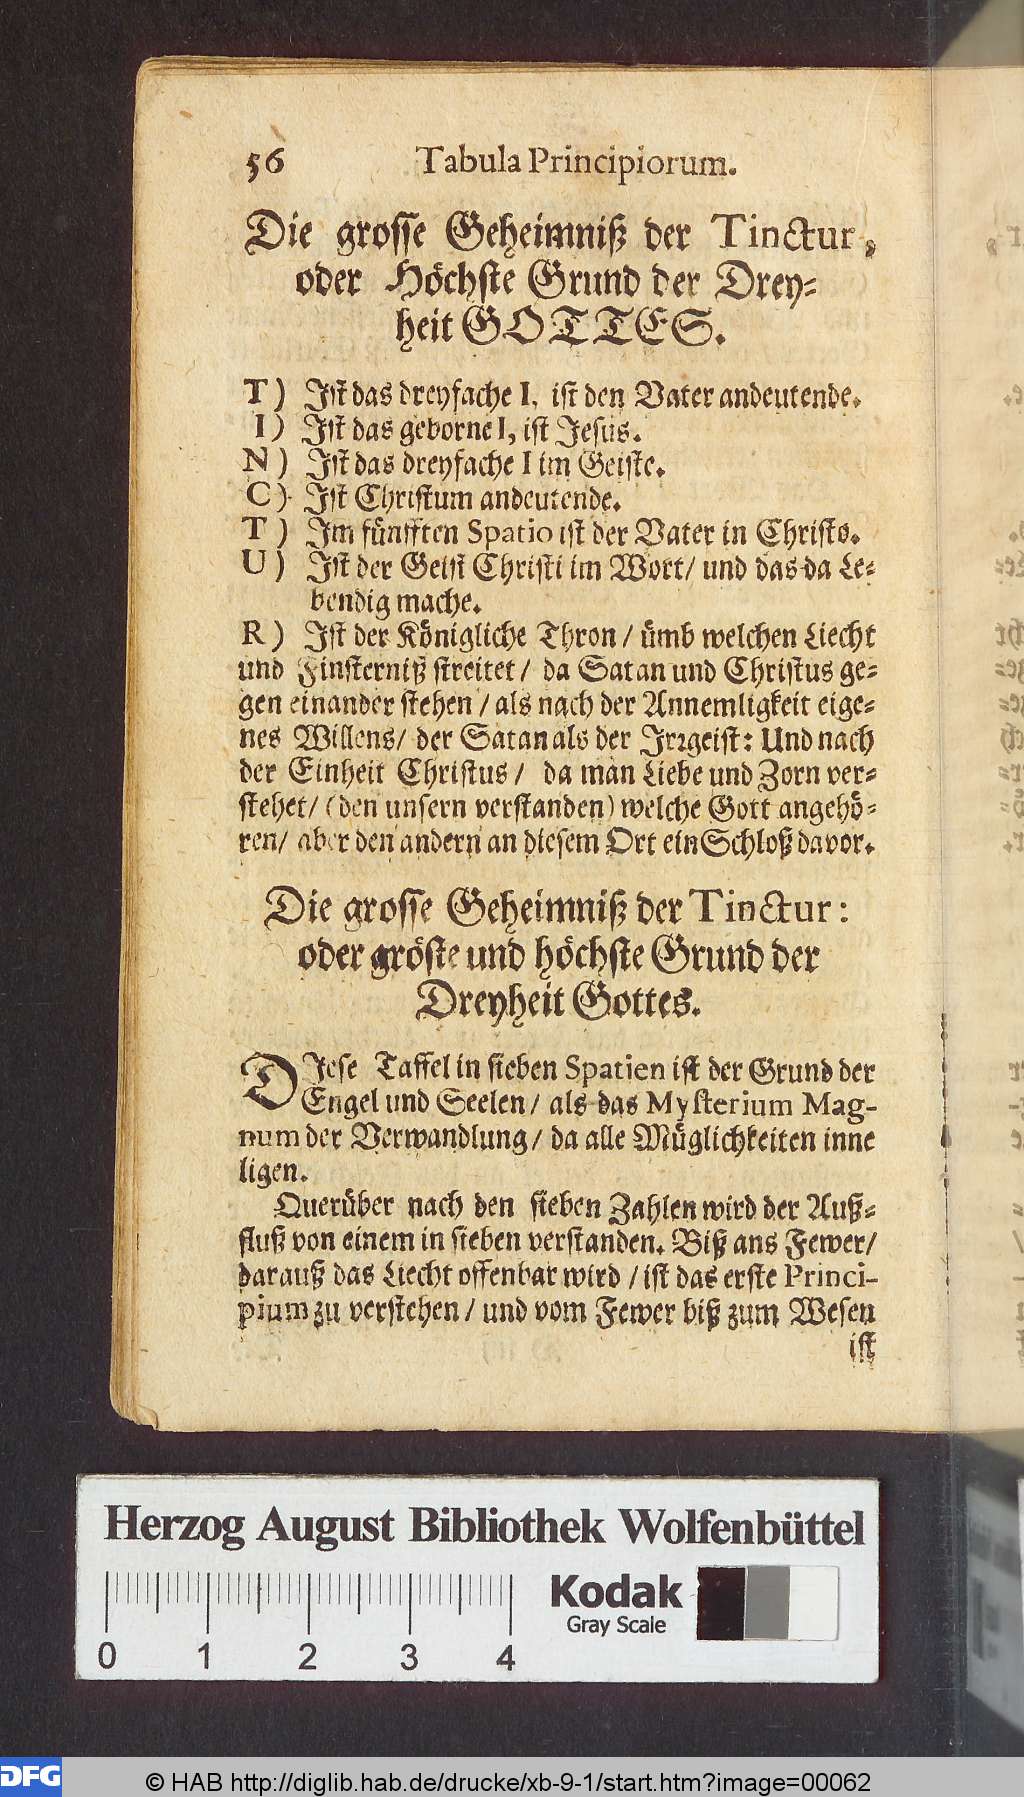 56 Tabula Principiorum.
Die grosse Geheimniß der Tinctur,
oder Höchste Grund der Drey-
heit GOTTES.
T) Ist das dreyfache I, ist den Vater andeutende.
I) Ist das geborne I, ist Jesus.
N) Ist das dreyfache I im Geiste.
C) Ist Christum andeutende.
T) Im fünfften Spatio ist der Vater in Christo.
U) Ist der Geist Christi im Wort/ und das da Le-
bendig mache.
R) Ist der Königliche Thron / ümb welchen Liecht
und Finsterniß streitet / da Satan und Christus ge-
gen einander stehen / als nach der Annemligkeit eige-
nes Willens/ der Satan als der Irrgeist: Und nach
der Einheit Christus / da man Liebe und Zorn ver-
stehet/ (den unsern verstanden) welche Gott angehö-
ren/ aber den andern an diesem Ort ein Schloß davor.
Die grosse Geheimniß der Tinctur:
oder gröste und höchste Grund der
Dreyheit Gottes.
DIese Taffel in sieben Spatien ist der Grund der
Engel und Seelen / als das Mysterium Mag-
num der Verwandlung / da alle Müglichkeiten inne
ligen.
Querüber nach den sieben Zahlen wird der Auß-
fluß von einem in sieben verstanden. Biß ans Fewer/
darauß das Liecht offenbar wird / ist das erste Princi-
pium zu verstehen / und vom Fewer biß zum Wesen
ist
Herzog August Bibliothek Wolfenbüttel
0 1 2 3 4
Kodak
Gray Scale
DFG
© HAB http://diglib.hab.de/drucke/xb-9-1/start.htm?image=00062